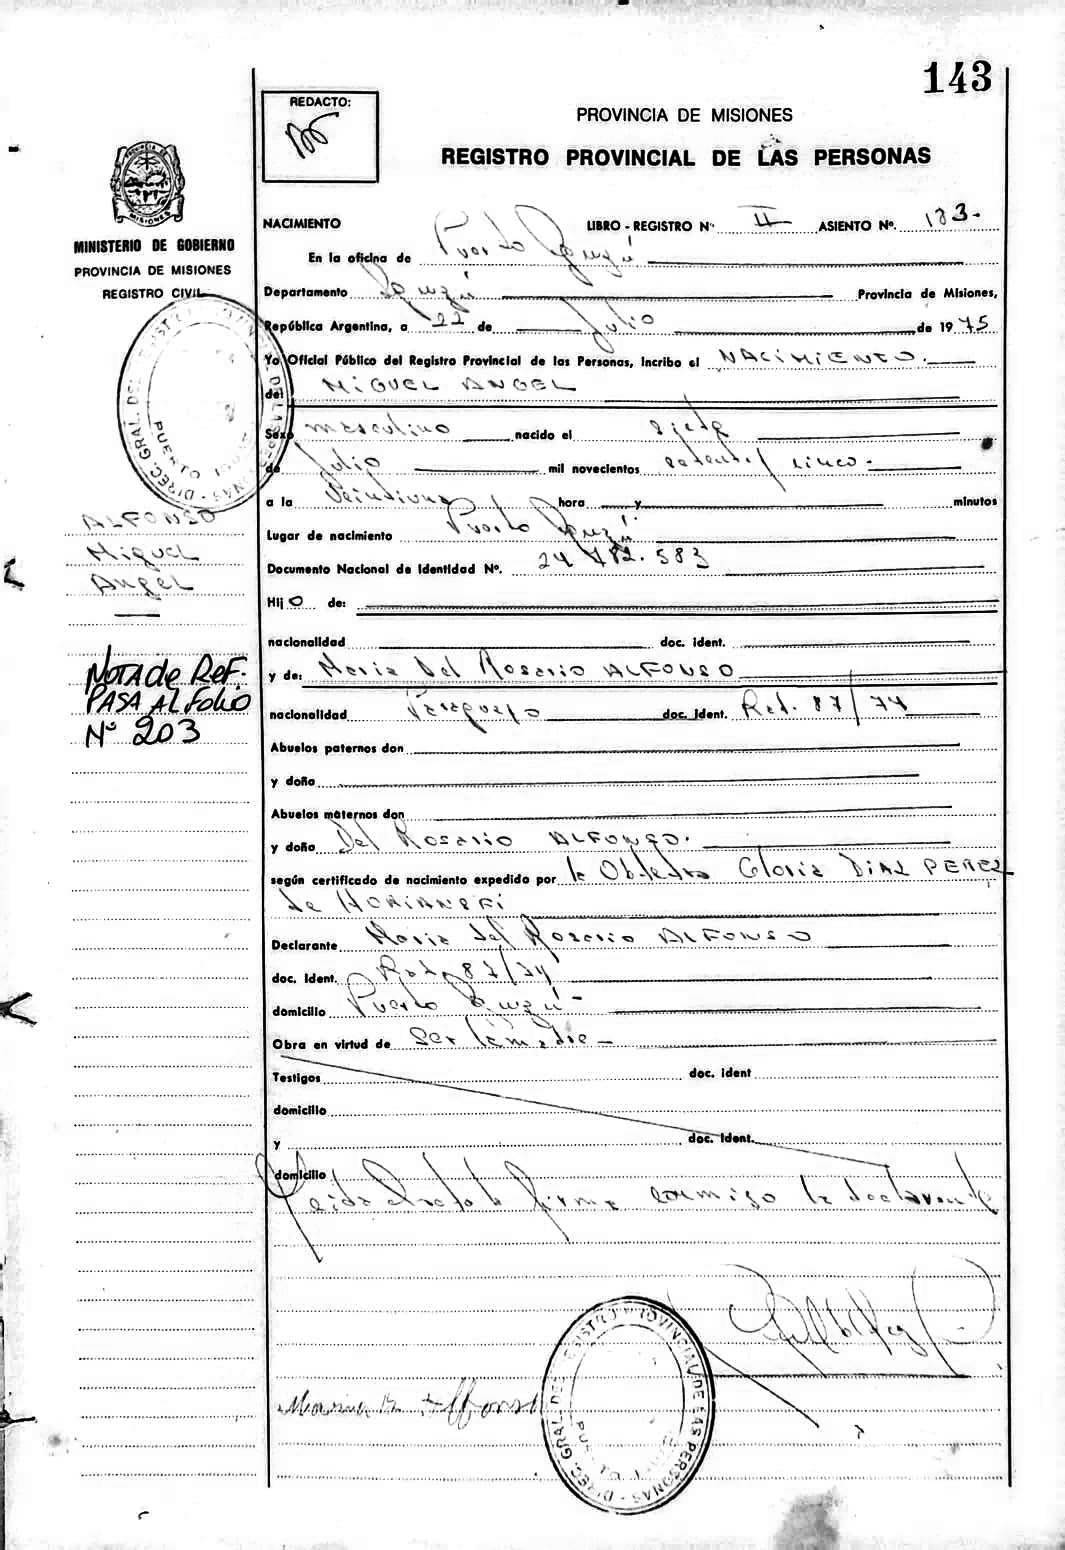 143
REDACTO:
PROVINCIA DE MISIONES
REGISTRO PROVINCIAL DE LAS PERSONAS
MISIONES
MINISTERIO DE GOBIERNO
PROVINCIA DE MISIONES
REGISTRO CIVIL
NACIMIENTO LIBRO - REGISTRO Nº II ASIENTO Nº. 183-
En la oficina de Puerto Iguazú
Departamento Iguazú Provincia de Misiones,
República Argentina, a 22 de Julio de 1975
Yo Oficial Público del Registro Provincial de las Personas, incribo el NACIMIENTO.
del MIGUEL ANGEL
Sexo masculino nacido el siete
de Julio mil novecientos setenta y cinco-
a la veintiuna hora y minutos
Lugar de nacimiento Puerto Iguazú
Documento Nacional de Identidad Nº. 24.782.583
Hijo de:
nacionalidad doc. ident.
y de: Maria Del Rosario ALFONSO
nacionalidad Paraguaya doc. ident. Rad. 87/74
Abuelos paternos don
y doña
Abuelos maternos don
y doña Del Rosario ALFONSO.
según certificado de nacimiento expedido por la Obstetra Gloria DIAZ PEREZ
de
Declarante Maria del Rosario ALFONSO
doc. ident. Rad. 87/74
domicilio Puerto Iguazú-
Obra en virtud de ser la madre-
Testigos doc. ident
domicilio
y doc. ident.
domicilio
Leida el acta la firma conmigo la declarante
ALFONSO
Miguel
Angel
NOTA de REF.
PASA AL Folio
Nº 203
DIREC. GRAL. DEL REGISTRO PROVINCIAL DE LAS PERSONAS
PUERTO IGUAZU
Maria R. Alfonso
DIREC. GRAL. DEL REGISTRO PROVINCIAL DE LAS PERSONAS
PUERTO IGUAZU